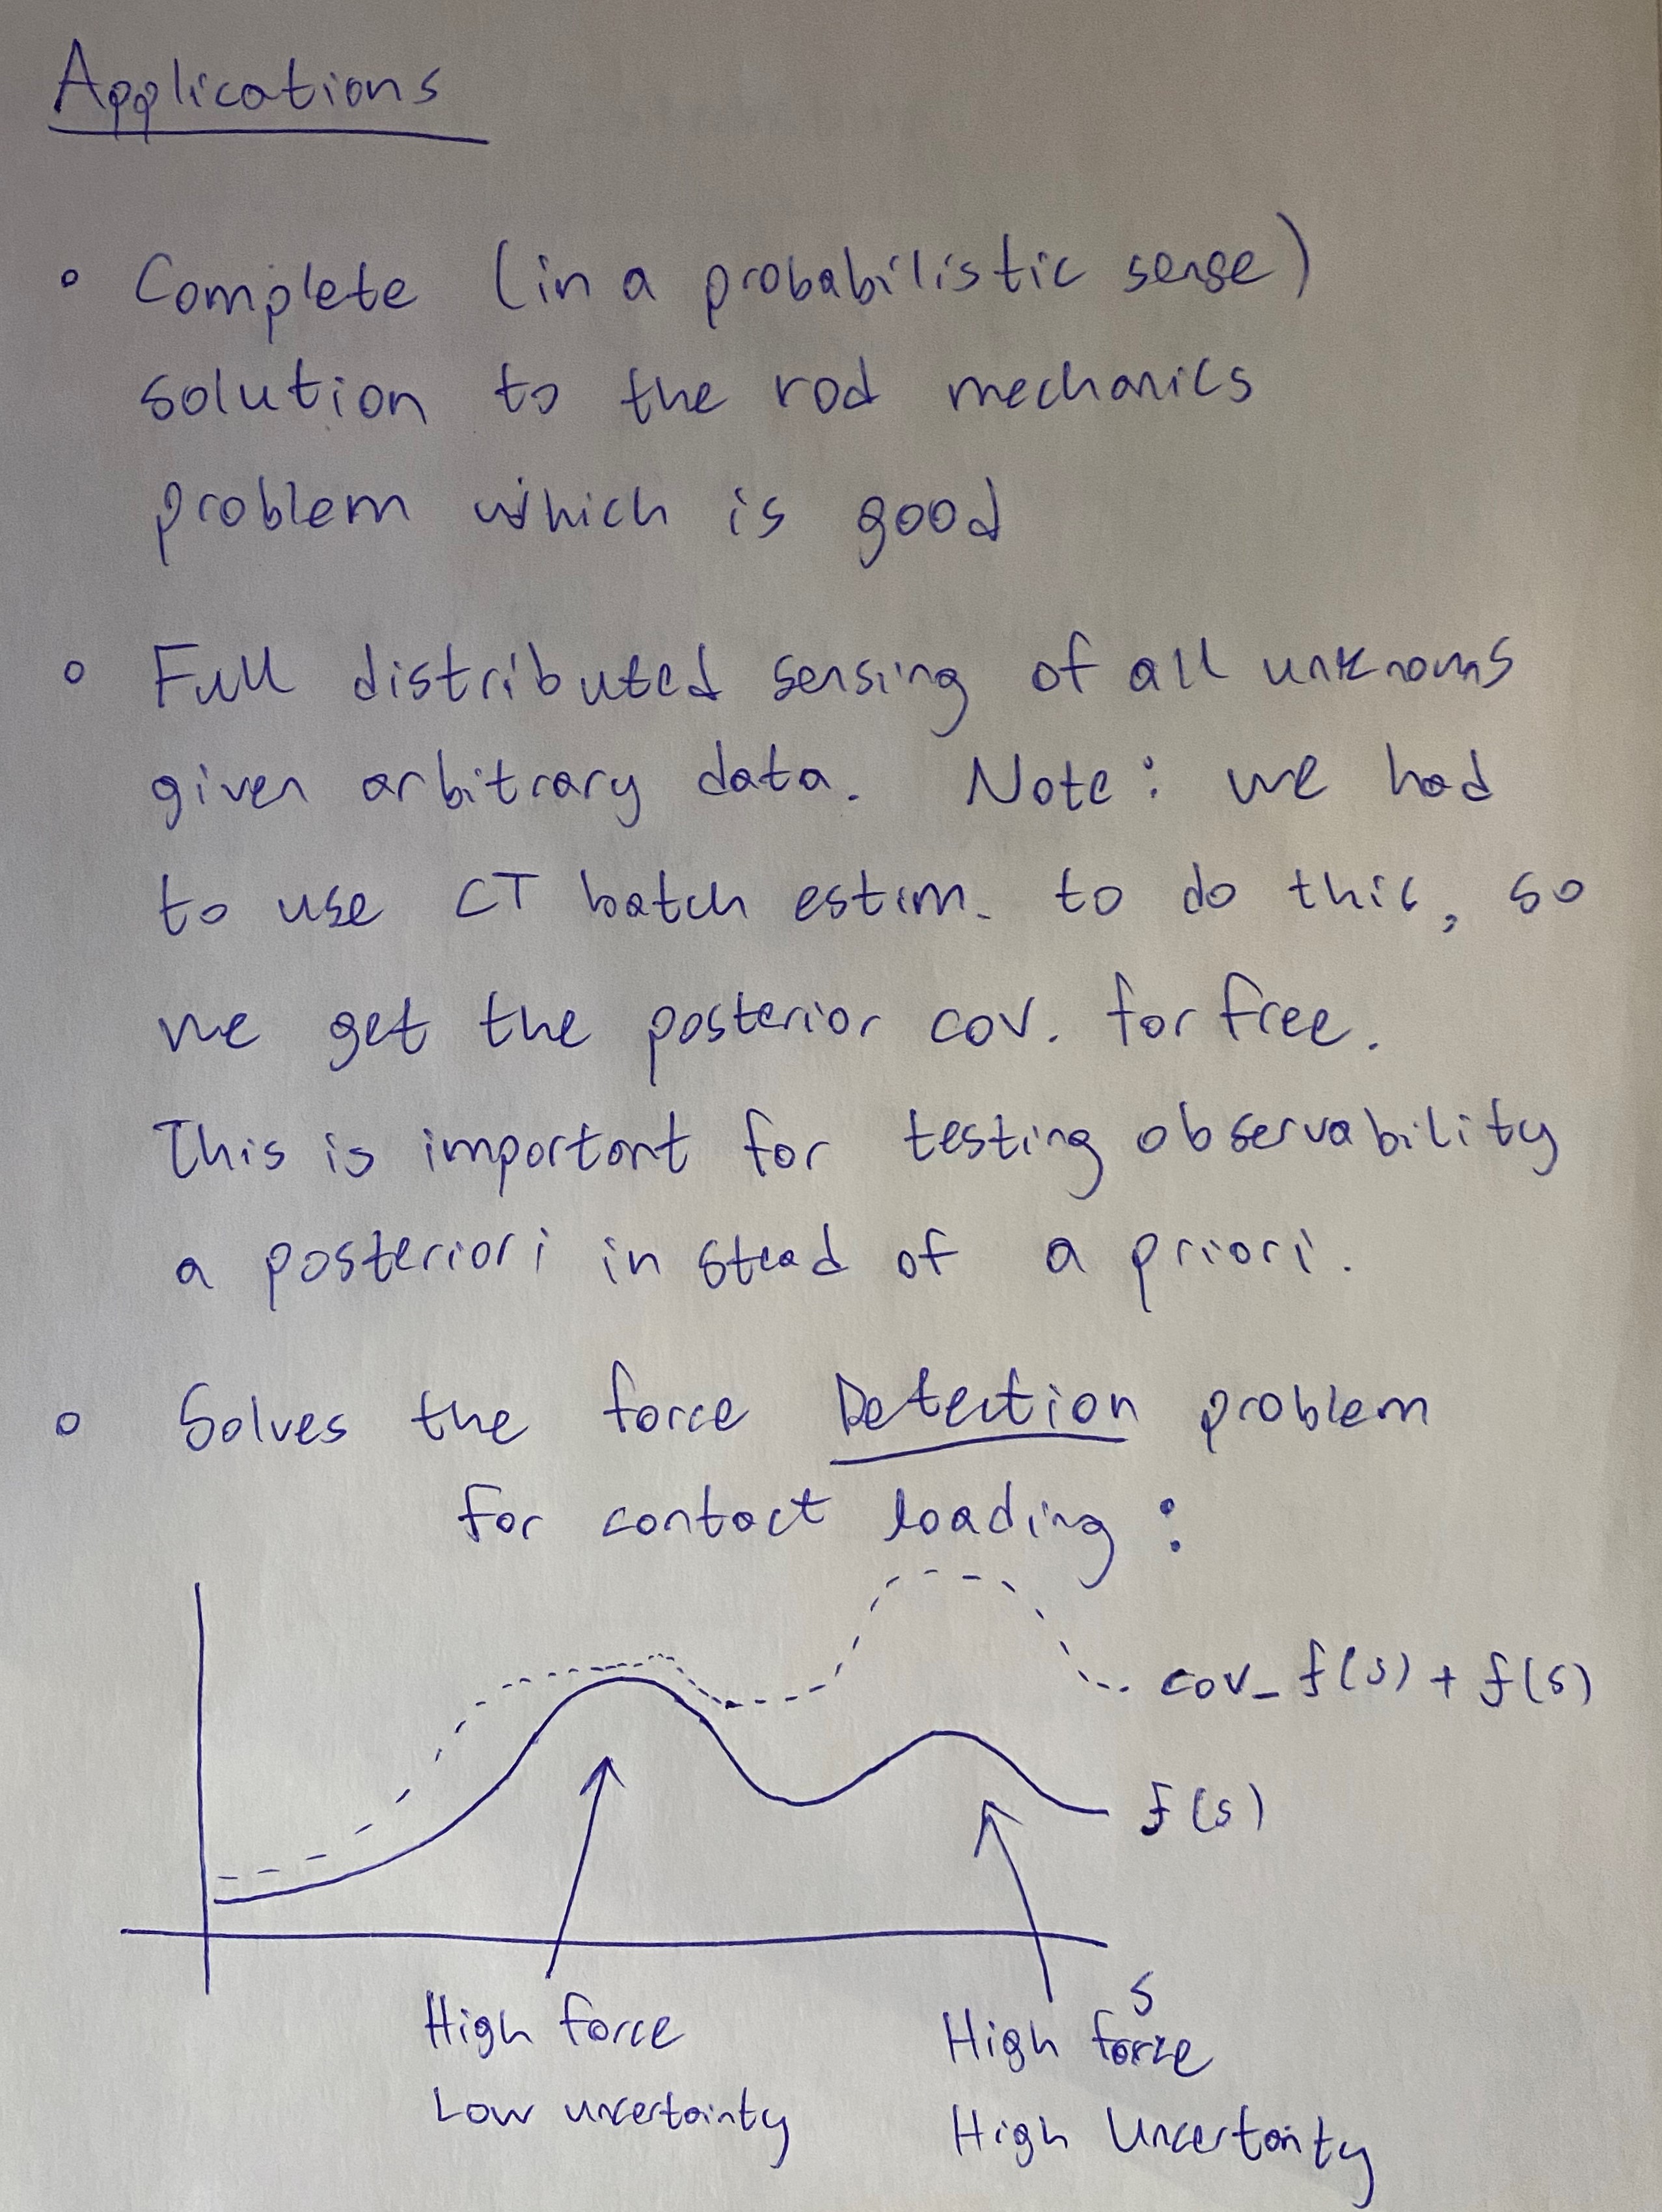 Applications
• Complete (in a probabilistic sense)
solution to the rod mechanics
problem which is good
• Full distributed sensing of all unknowns
given arbitrary data. Note: we had
to use CT batch estim. to do this, so
we get the posterior cov. for free.
This is important for testing observability
a posteriori in stead of a priori.
• Solves the force Detection problem
for contact loading:
cov_f(s) + f(s)
f(s)
s
High force
Low uncertainty
High force
High Uncertainty